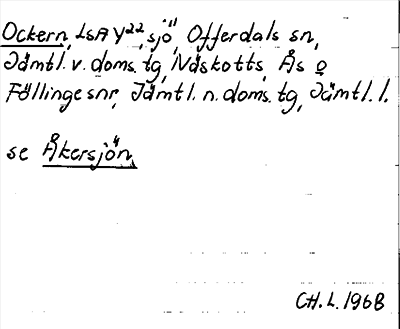 Ockern, LSA Y22 sjö, Offerdals sn,
Jämtl. v. doms. tg, Näskotts, Ås o
Föllinge snr, Jämtl. n. doms. tg, Jämtl. l.
se Åkersjön
CH. L. 1968